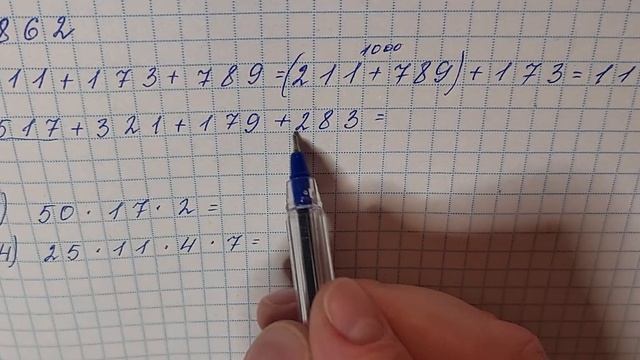 862
1000
11+173+789=(211+789)+173=11
517+321+179+283=
) 50·17·2=
4) 25·11·4·7=